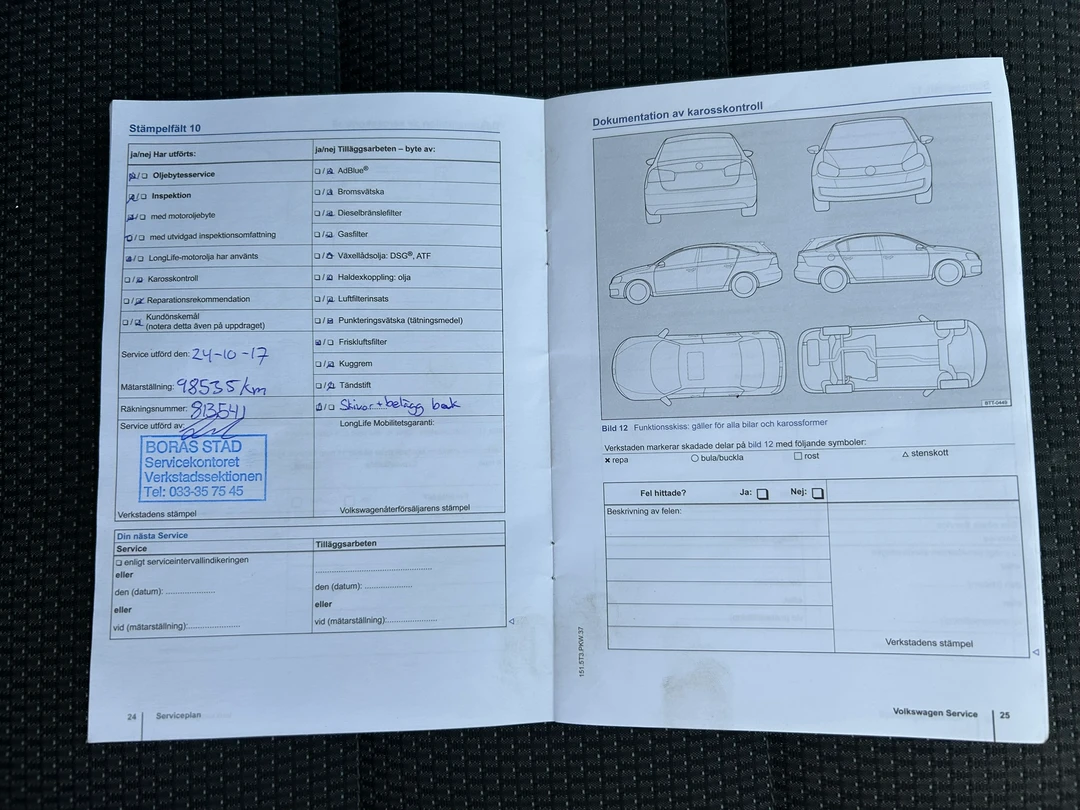 Stämpelfält 10
ja/nej Har utförts:
❏/❏ Oljebytesservice
❏/❏ Inspektion
❏/❏ med motoroljebyte
❏/❏ med utvidgad inspektionsomfattning
❏/❏ LongLife-motorolja har använts
❏/❏ Karosskontroll
❏/❏ Reparationsrekommendation
❏/❏ Kundönskemål
(notera detta även på uppdraget)
Service utförd den: 24-10-17
Mätarställning: 98535 km
Räkningsnummer: 813541
Service utförd av:
BORÅS STAD
Servicekontoret
Verkstadssektionen
Tel: 033-35 75 45
Verkstadens stämpel
ja/nej Tilläggsarbeten – byte av:
❏/❏ AdBlue®
❏/❏ Bromsvätska
❏/❏ Dieselbränslefilter
❏/❏ Gasfilter
❏/❏ Växellådsolja: DSG®, ATF
❏/❏ Haldexkoppling: olja
❏/❏ Luftfilterinsats
❏/❏ Punkteringsvätska (tätningsmedel)
❏/❏ Friskluftsfilter
❏/❏ Kuggrem
❏/❏ Tändstift
❏/❏ Skivor + belägg bak
LongLife Mobilitetsgaranti:
Volkswagenåterförsäljarens stämpel
Din nästa Service
Service
❏ enligt serviceintervallindikeringen
eller
den (datum): ....................
eller
vid (mätarställning):....................
Tilläggsarbeten
..............................................
den (datum): ..................
eller
vid (mätarställning):...................
24 Serviceplan
Dokumentation av karosskontroll
BTT-0449
Bild 12 Funktionsskiss: gäller för alla bilar och karossformer
Verkstaden markerar skadade delar på bild 12 med följande symboler:
✖ repa ○ bula/buckla □ rost △ stenskott
Fel hittade? Ja: ❏ Nej: ❏
Beskrivning av felen:
Verkstadens stämpel
151.5T3.PKW.37
Volkswagen Service 25